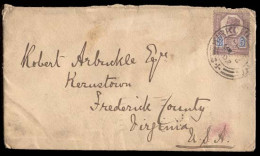 Robert Arbuckle Esqr
Kernstown
Frederick County
Virginia
U.S.A.